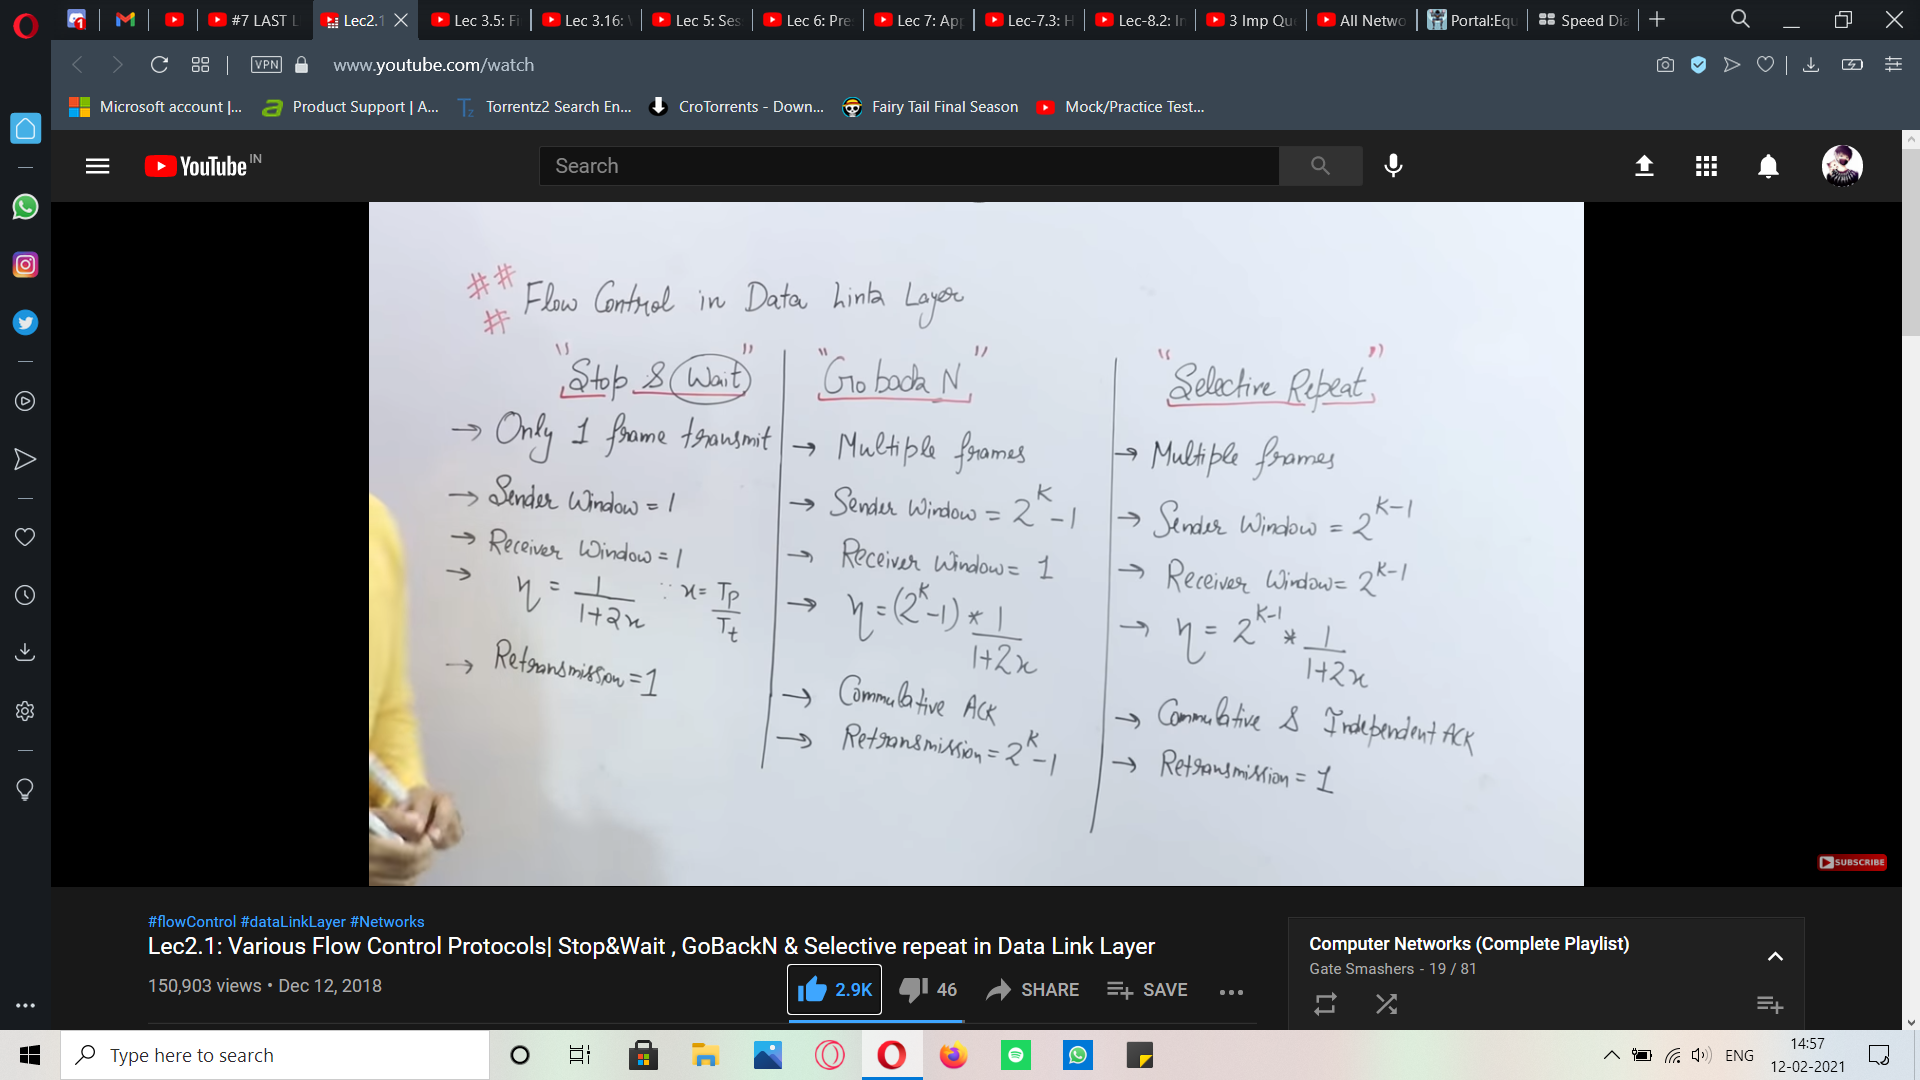 #7 LAST L
Lec2.1
Lec 3.5: Fi
Lec 3.16:
Lec 5: Ses
Lec 6: Pre
Lec 7: App
Lec-7.3: H
Lec-8.2: In
3 Imp Que
All Netwo
Portal:Equ
Speed Dia
VPN
www.youtube.com/watch
Microsoft account |...
Product Support | A...
Torrentz2 Search En...
CroTorrents - Down...
Fairy Tail Final Season
Mock/Practice Test...
YouTube IN
Search
## Flow Control in Data Link Layer
#
"Stop & Wait"
→ Only 1 frame transmit
→ Sender Window = 1
→ Receiver Window = 1
→ η = 1/(1+2x) ∵ x = Tp/Tt
→ Retransmission = 1
"Go back N"
→ Multiple frames
→ Sender Window = 2^K - 1
→ Receiver Window = 1
→ η = (2^K - 1) * 1/(1+2x)
→ Commulative ACK
→ Retransmission = 2^K - 1
"Selective Repeat"
→ Multiple frames
→ Sender Window = 2^K-1
→ Receiver Window = 2^K-1
→ η = 2^K-1 * 1/(1+2x)
→ Commulative & Independent ACK
→ Retransmission = 1
SUBSCRIBE
#flowControl #dataLinkLayer #Networks
Lec2.1: Various Flow Control Protocols| Stop&Wait , GoBackN & Selective repeat in Data Link Layer
150,903 views • Dec 12, 2018
2.9K
46
SHARE
SAVE
Computer Networks (Complete Playlist)
Gate Smashers - 19 / 81
Type here to search
ENG
14:57
12-02-2021